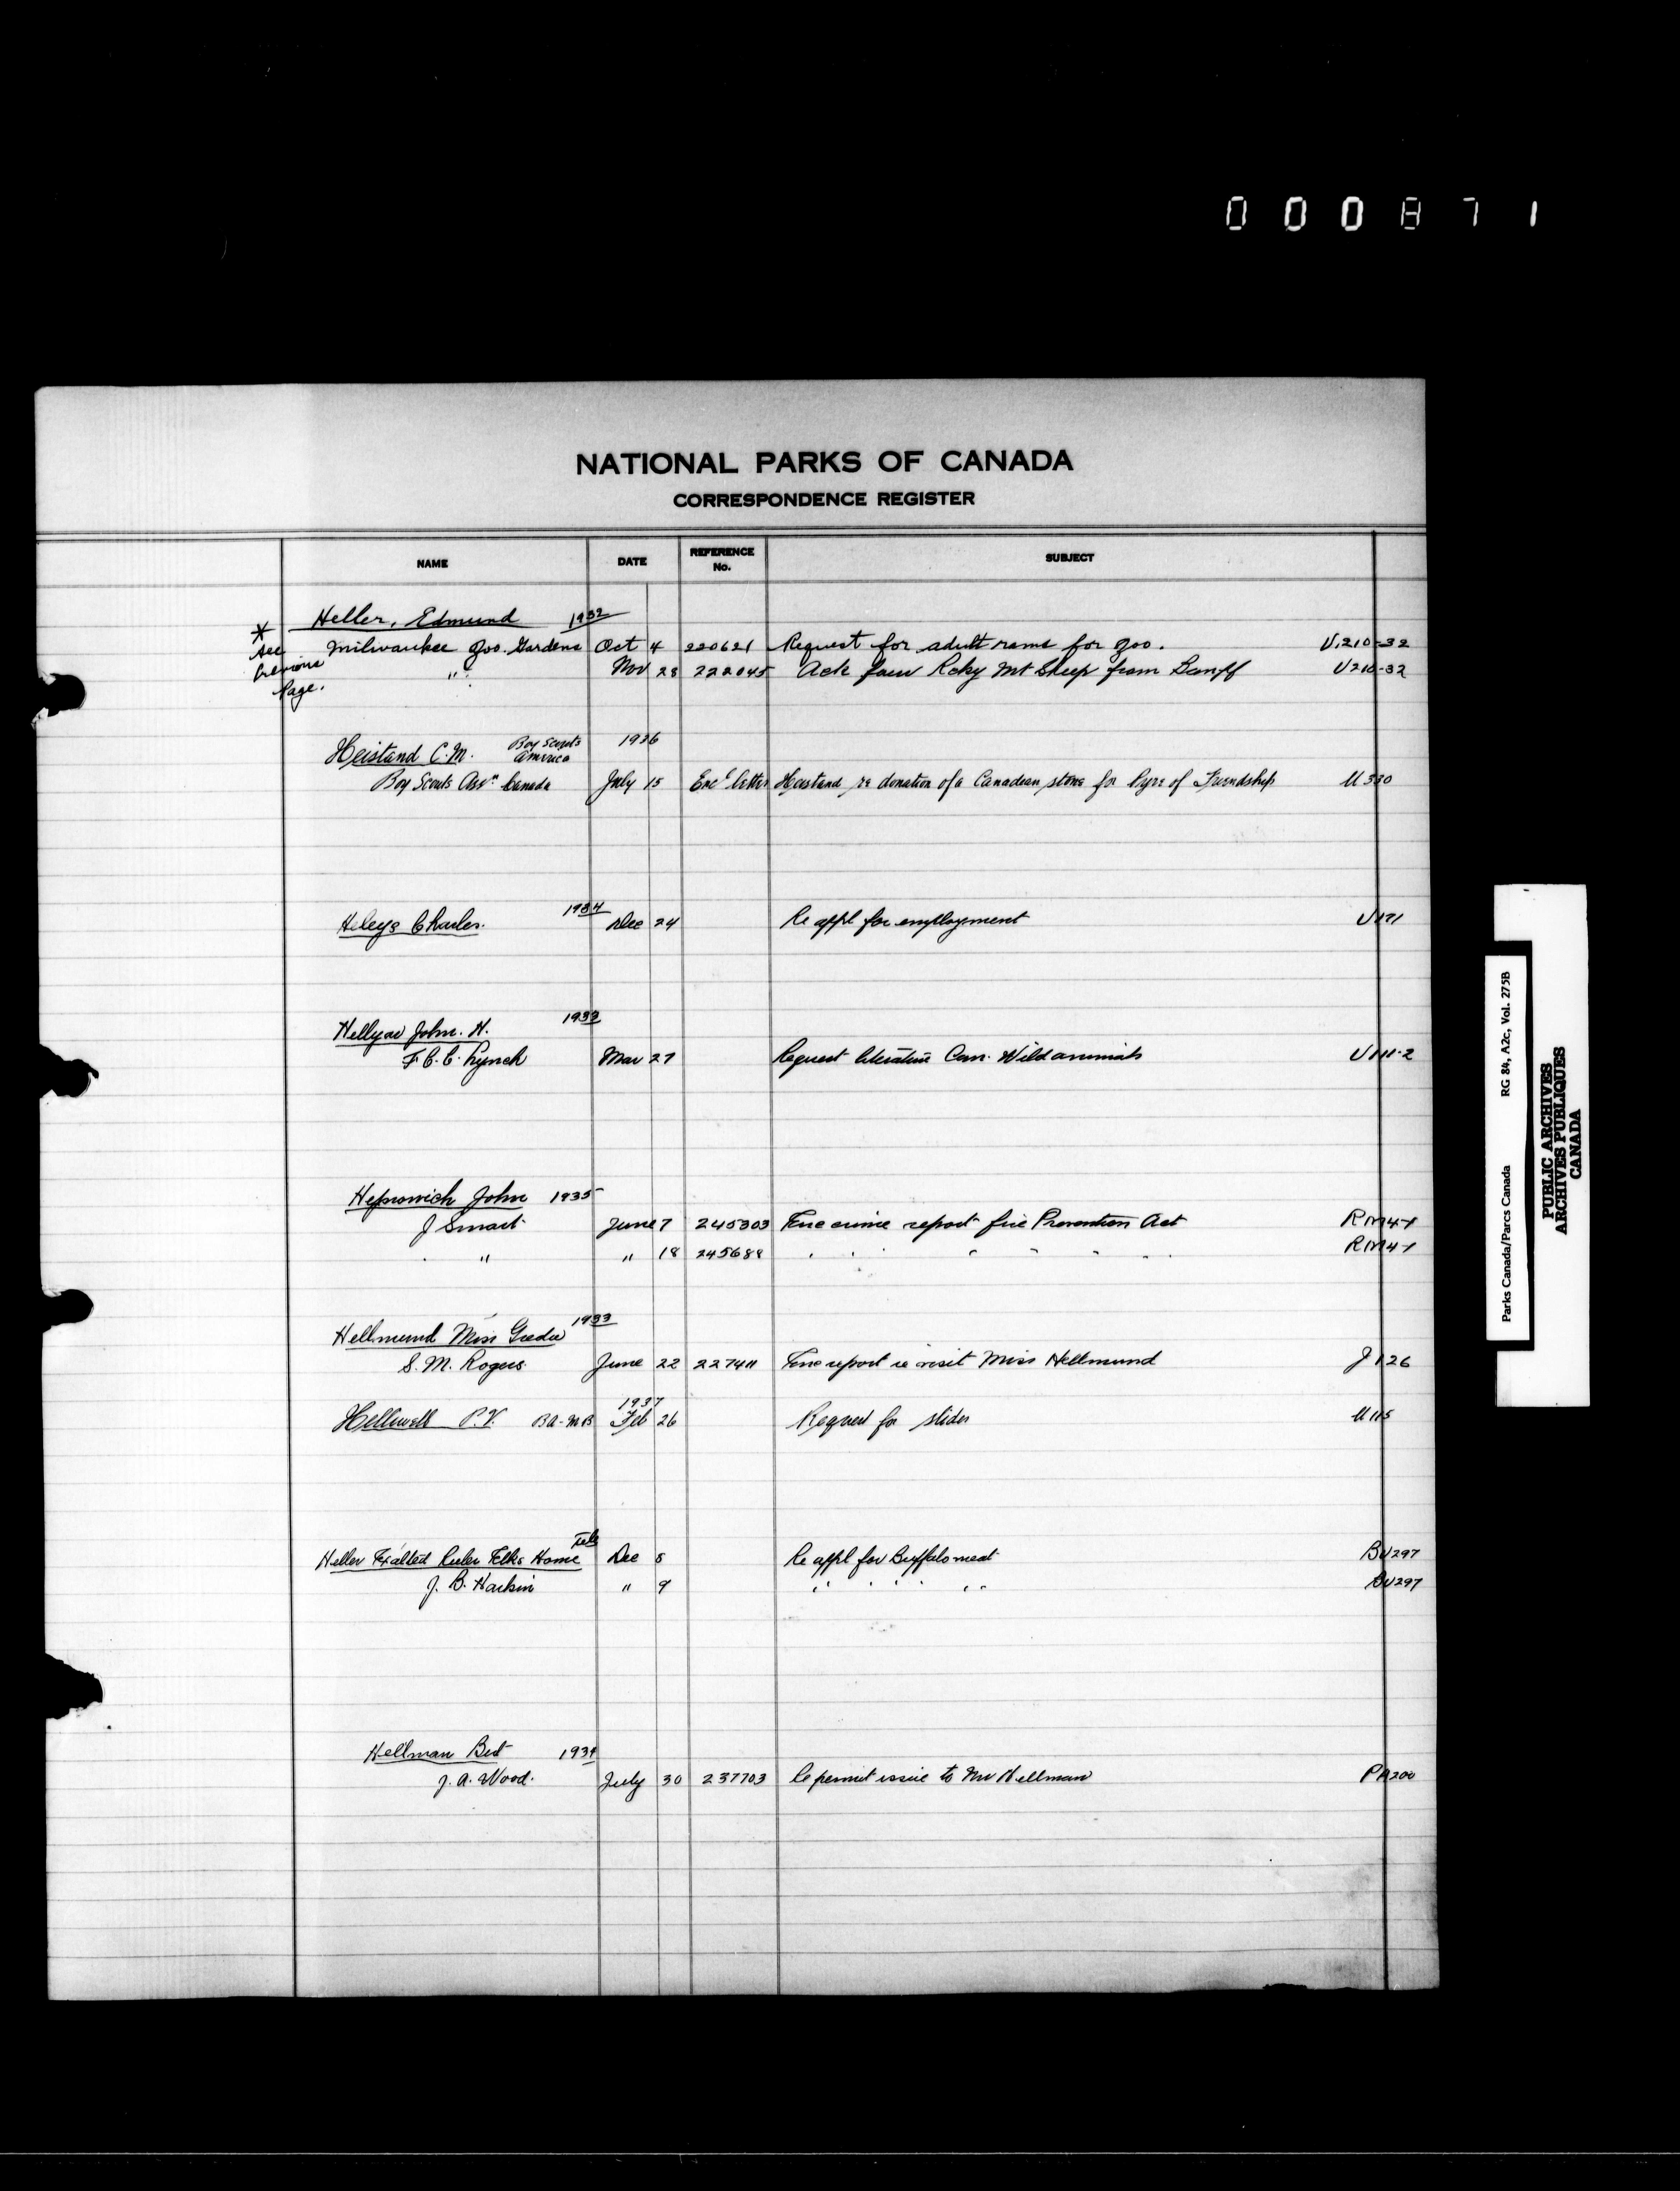 000871
NATIONAL PARKS OF CANADA
CORRESPONDENCE REGISTER
NAME DATE REFERENCE No. SUBJECT
Heller, Edmund 1932
* See Previous Page.
Milwaukee Zoo. Gardens Oct 4 220621 Request for adult rams for zoo. U.210-32
" Nov 28 222045 Ack four Rcky Mt Sheep from Banff U210-32
Heistand C.M. Boy Scouts America 1936
Boy Scouts Assn Canada July 15 Enc letter Heistand re donation of a Canadian stone for Pyre of Friendship U 330
Charles. 1934 Dec 24 Re appl for employment U171
Hellyar John. H. 1933
F.C.C. Lynch Mar 27 Request literature Can. Wild animals U111-2
John 1935
J Smart June 7 245303 Enc crime report fire Prevention Act RM4-1
" " 18 245688 " " " " " " RM41
Hellmund Miss 1933
S. M. Rogers June 22 227411 Enc report re visit Miss Hellmund J 126
Helliwell P.V. BA-MB 1937 Feb 26 Request for slides U 115
Heller Exalted Ruler Elks Home Dec 5 Re appl for Buffalo meat BU297
J. B. Harkin " 9 " " " " " BU297
Hellman Bert 1934
J. A. Wood. July 30 237703 Re permit issue to Mr Hellman PA200
Parks Canada/Parcs Canada RG 84, A2c, Vol. 2758
PUBLIC ARCHIVES
ARCHIVES PUBLIQUES
CANADA